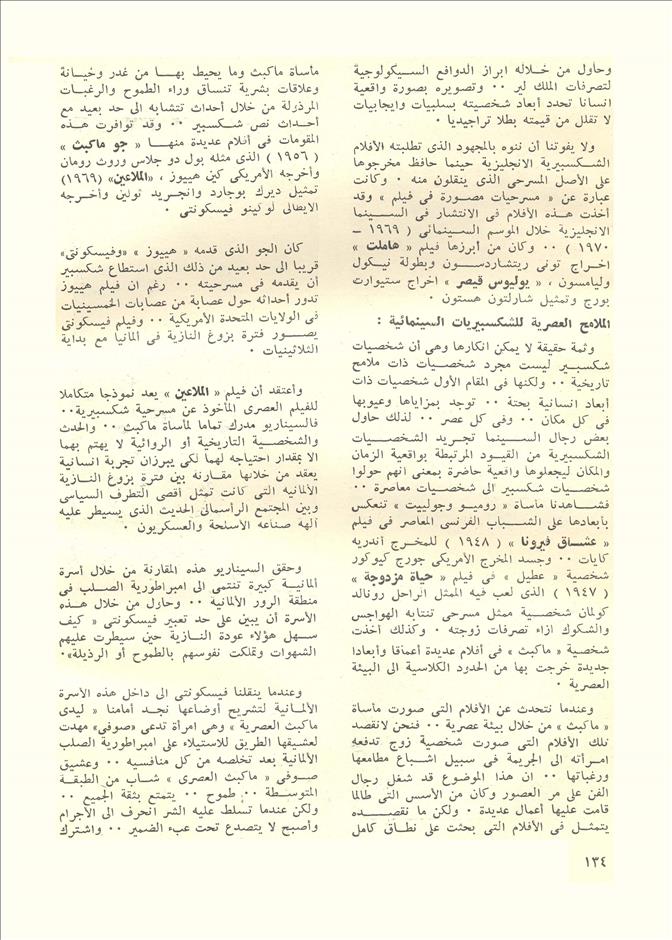 وحاول من خلاله ابراز الدوافع السيكولوجية
لتصرفات الملك لير ٠٠ وتصويره بصورة واقعية
انسانا تحدد أبعاد شخصيته بسلبيات وايجابيات
لا تقلل من قيمته بطلا تراجيديا ٠
ولا يفوتنا أن ننوه بالمجهود الذى تطلبته الأفلام
الشكسبيرية الانجليزية حينما حافظ مخرجوها
على الأصل المسرحى الذى ينقلون منه ٠ وكانت
عبارة عن « مسرحيات مصورة فى فيلم » وقد
أخذت هذه الأفلام فى الانتشار فى السينما
الانجليزية خلال الموسم السينمائى ( ١٩٦٩ –
١٩٧٠ ) ٠٠ وكان من أبرزها فيلم « هاملت »
اخراج تونى ريتشاردسون وبطولة نيكول
وليامسون ، « يوليوس قيصر » اخراج ستيوارت
بورج وتمثيل شارلتون هستون ٠
الملامح العصرية للشكسبيريات السينمائية :
وثمة حقيقة لا يمكن انكارها وهى أن شخصيات
شكسبير ليست مجرد شخصيات ذات ملامح
تاريخية ٠٠ ولكنها فى المقام الأول شخصيات ذات
أبعاد انسانية بحتة ٠٠ توجد بمزاياها وعيوبها
فى كل مكان ٠٠ وفى كل عصر ٠٠ لذلك حاول
بعض رجال السينما تجريد الشخصيات
الشكسبيرية من القيود المرتبطة بواقعية الزمان
والمكان ليجعلوها واقعية حاضرة بمعنى انهم حولوا
شخصيات شكسبير الى شخصيات معاصرة ٠٠
فشاهدنا مأساة « روميو وجولييت » تنعكس
بأبعادها على الشباب الفرنسى المعاصر فى فيلم
« عشاق فيرونا » ( ١٩٤٨ ) للمخرج أندريه
كايات ٠٠ وجسد المخرج الأمريكى جورج كيوكور
شخصية « عطيل » فى فيلم « حياة مزدوجة »
( ١٩٤٧ ) الذى لعب فيه الممثل الراحل رونالد
كولمان شخصية ممثل مسرحى تنتابه الهواجس
والشكوك ازاء تصرفات زوجته ٠ وكذلك أخذت
شخصية « ماكبث » فى أفلام عديدة أعماقا وأبعادا
جديدة خرجت بها من الحدود الكلاسية الى البيئة
العصرية ٠
وعندما نتحدث عن الأفلام التى صورت مأساة
« ماكبث » من خلال بيئة عصرية ٠٠ فنحن لانقصد
تلك الأفلام التى صورت شخصية زوج تدفعه
امرأته الى الجريمة فى سبيل اشباع مطامعها
ورغباتها ٠٠ ان هذا الموضوع قد شغل رجال
الفن على مر العصور وكان من الأسس التى طالما
قامت عليها أعمال عديدة ٠ ولكن ما نقصده
يتمثل فى الأفلام التى بحثت على نطاق كامل
مأساة ماكبث وما يحيط بها من غدر وخيانة
وعلاقات بشرية تنساق وراء الطموح والرغبات
المرذولة من خلال أحداث تتشابه الى حد بعيد مع
أحداث نص شكسبير ٠٠ وقد توافرت هذه
المقومات فى أفلام عديدة منها « جو ماكبث »
( ١٩٥٦ ) الذى مثله بول دو جلاس وروث رومان
وأخرجه الأمريكى كين هييوز ، «الملاعين» (١٩٦٩)
تمثيل ديرك بوجارد وانجريد تولين وأخرجه
الايطالى لوكينو فيسكونتى ٠
كان الجو الذى قدمه « هييوز » «وفيسكونتى»
قريبا الى حد بعيد من ذلك الذى استطاع شكسبير
أن يقدمه فى مسرحيته ٠٠ رغم ان فيلم هييوز
تدور أحداثه حول عصابة من عصابات الخمسينيات
فى الولايات المتحدة الأمريكية ٠٠ وفيلم فيسكونتى
يصور فترة بزوغ النازية فى المانيا مع بداية
الثلاثينيات ٠
وأعتقد أن فيلم « الملاعين » يعد نموذجا متكاملا
للفيلم العصرى المأخوذ عن مسرحية شكسبيرية٠٠
فالسيناريو مدرك تماما لمأساة ماكبث ٠٠ والحدث
والشخصية التاريخية أو الروائية لا يهتم بهما
الا بمقدار احتياجه لهما لكى يبرزان تجربة انسانية
يعقد من خلالها مقارنه بين فترة بزوغ النازية
الألمانيه التى كانت تمثل أقصى التطرف السياسى
وبين المجتمع الرأسمالى الحديث الذى يسيطر عليه
آلهه صناعه الأسلحة والعسكريون ٠
وحقق السيناريو هذه المقارنة من خلال أسرة
ألمانية كبيرة تنتمى الى امبراطورية الصلب فى
منطقة الرور الألمانية ٠٠ وحاول من خلال هذه
الأسرة أن يبين على حد تعبير فيسكونتى « كيف
سهل هؤلاء عودة النازية حين سيطرت عليهم
الشهوات وتملكت نفوسهم بالطموح أو الرذيلة»٠
وعندما ينقلنا فيسكونتى الى داخل هذه الأسرة
الألمانية لتشريح أوضاعها نجد أمامنا « ليدى
ماكبث العصرية » وهى امرأة تدعى «صوفى» مهدت
لعشيقها الطريق للاستيلاء على امبراطورية الصلب
الألمانية بعد تخلصه من كل منافسيه ٠٠ وعشيق
صوفى « ماكبث العصرى » شاب من الطبقة
المتوسطة ٠٠ طموح ٠٠ يتمتع بثقة الجميع ٠٠
ولكن عندما تسلط عليه الشر انحرف الى الأجرام
وأصبح لا يتصدع تحت عبء الضمير ٠٠ واشترك
١٣٤